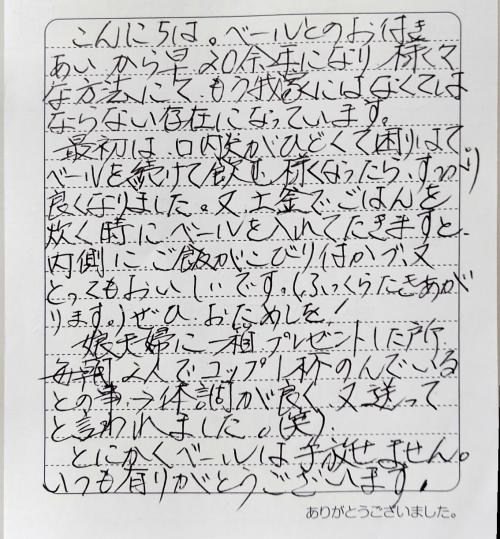 こんにちは。ベールとのお付き
あいから早20余年になり様々
な方法にてもう我家にはなくては
ならない存在になっています。
最初は口内炎がひどくて困りはて
ベールを続けて飲む様になったら、すっかり
良くなりました。又土釜でごはんを
炊く時にベールを入れてたきますと、
内側にご飯がこびり付かづ、又
とってもおいしいです。(ふっくらたきあが
ります。)ぜひおためしを!
娘夫婦に一箱プレゼントした所
毎朝2人でコップ1杯のんでいる
との事→体調が良く又送って
と言われました。(笑)
とにかくベールは手放せません。
いつも有りがとうございます。
ありがとうございました。